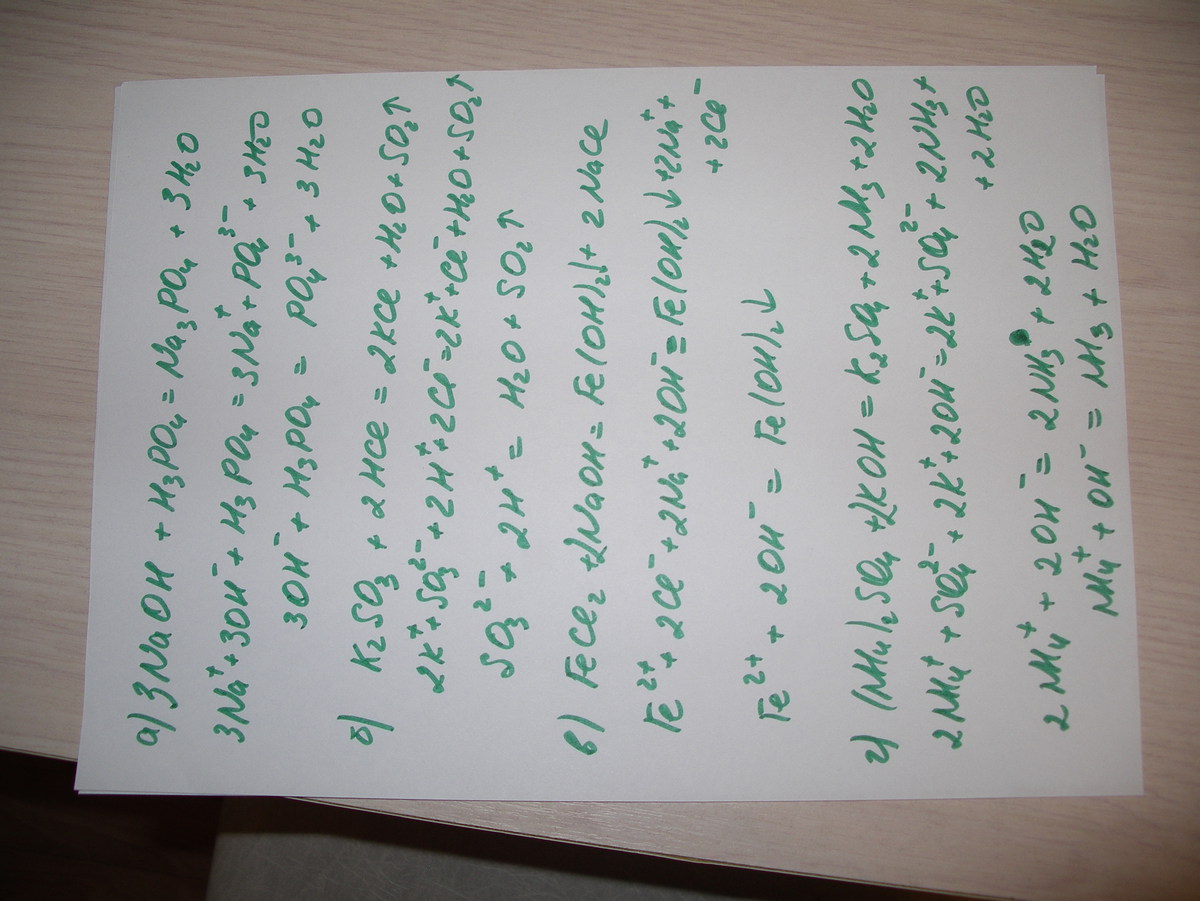 а) 3NaOH + H₃PO₄ = Na₃PO₄ + 3H₂O
3Na⁺+3OH⁻+ H₃PO₄ = 3Na⁺+ PO₄³⁻ + 3H₂O
3OH⁻+ H₃PO₄ = PO₄³⁻ + 3H₂O
б) K₂SO₃ + 2HCl = 2KCl +H₂O+ SO₂↑
2K⁺+SO₃²⁻+2H⁺+2Cl⁻=2K⁺+Cl⁻+H₂O+SO₂↑
SO₃²⁻ + 2H⁺ = H₂O + SO₂↑
в) FeCl₂ +2NaOH = Fe(OH)₂↓+ 2NaCl
Fe²⁺+ 2Cl⁻+2Na⁺+2OH⁻=Fe(OH)₂↓+2Na⁺+
+ 2Cl⁻
Fe²⁺ + 2OH⁻ = Fe(OH)₂↓
г) (NH₄)₂SO₄ +2KOH = K₂SO₄ + 2NH₃ +2H₂O
2NH₄⁺ +SO₄²⁻+2K⁺+2OH⁻=2K⁺+SO₄²⁻+ 2NH₃+
+ 2H₂O
2NH₄⁺ + 2OH⁻ = 2NH₃ + 2H₂O
NH₄⁺ + OH⁻ = NH₃ + H₂O